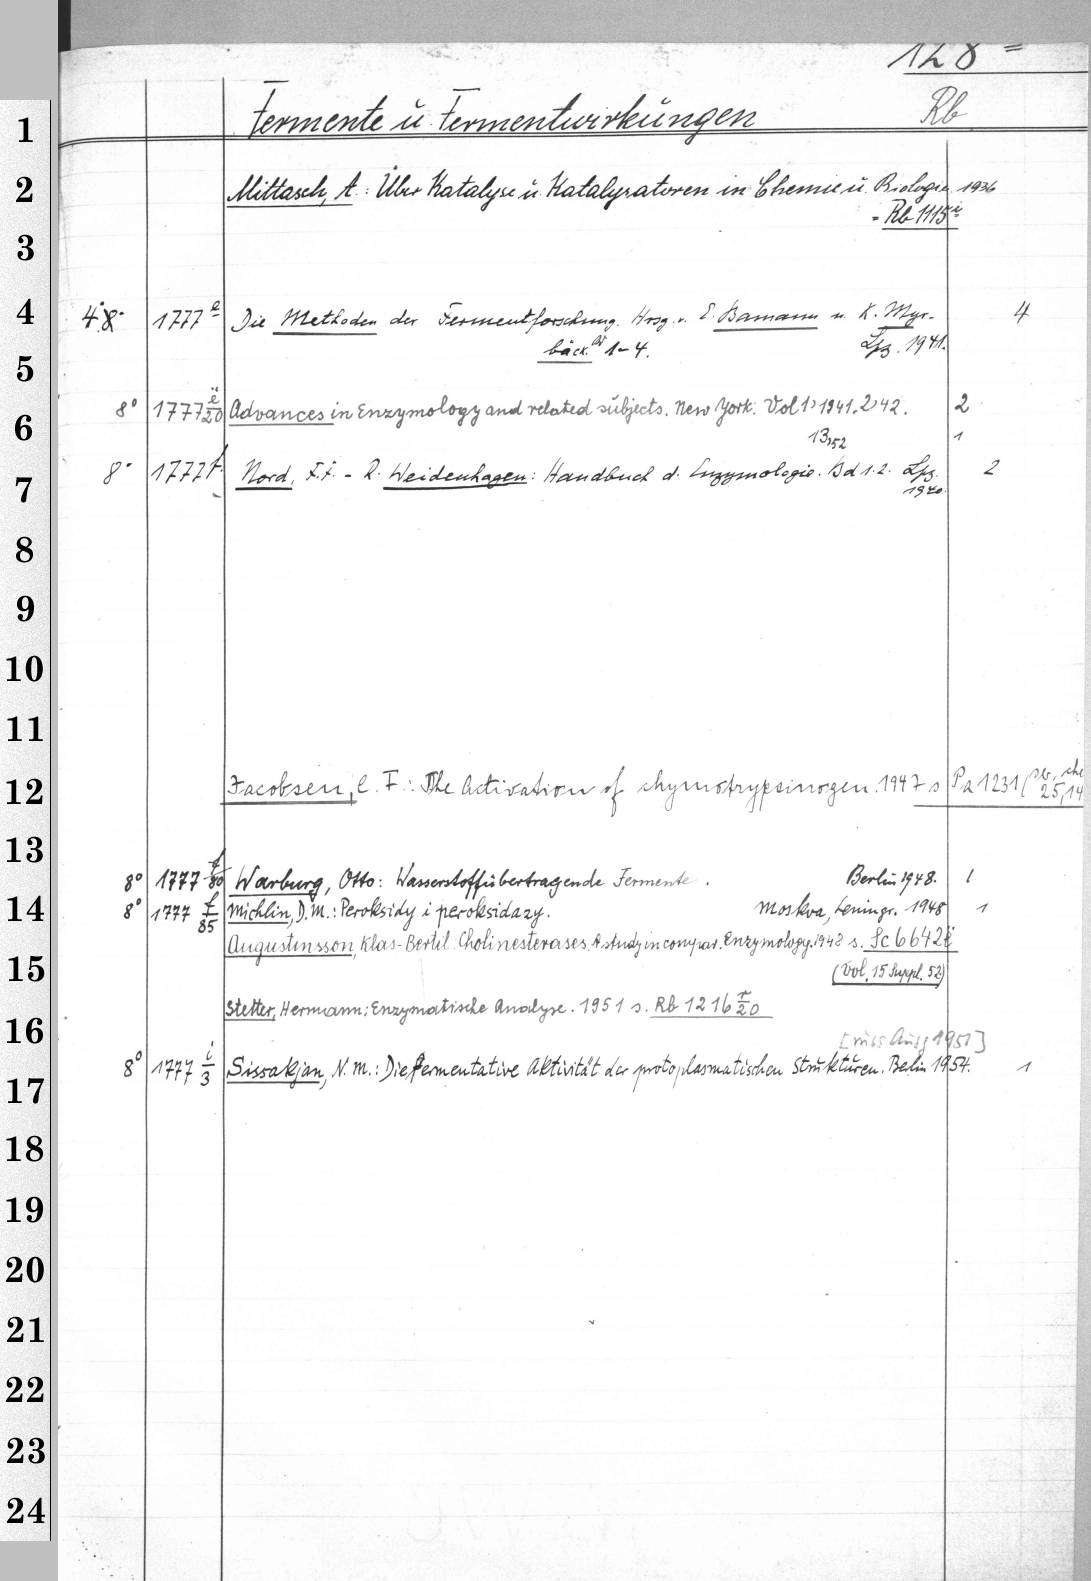 128
Rb
Fermente ü. Fermentwirküngen
1
2 Mittasch, A.: Über Katalyse ü. Katalysatoren in Chemie ü. Biologie 1936
= Rb 1115
3
4 4° 8° 1777 Die Methoden der Fermentforschung. Hrsg. v. E. Bamann u. K. Myr- 4
bäck. Bd 1-4. Lpz. 1941.
5
8° 1777 ë/20 Advances in Enzymology and related sübjects. New York. Vol 1) 1941. 2) 42. 2
6 13,52 1
8° 1777 f. Nord, F. F. - R. Weidenhagen: Handbuch d. Enzymologie. Bd 1. 2. Lpz. 2
7 1940.
8
9
10
11
12 Jacobsen, C. F.: The Activation of chymotrypsinogen. 1947 s Pa 1231 (
25,14
13
8° 1777 f/80 Warburg, Otto: Wasserstoffübertragende Fermente. Berlin 1948. 1
14 8° 1777 f/85 Michlin, D. M.: Peroksidy i peroksidazy. Moskva, Leningr. 1948 1
Augustinsson, Klas-Bertil. Cholinesterases. A study in compar. Enzymology. 1948 s. Sc 6642
15 (Vol. 15 Suppl. 52)
Stetter, Hermann: Enzymatische Analyse. 1951 s. Rb 1216 r/20
16 1951]
8° 1777 i/3 Sissakjan, N. M.: Die fermentative Aktivität der protoplasmatischen Strüktüren. Berlin 1954. 1
17
18
19
20
21
22
23
24